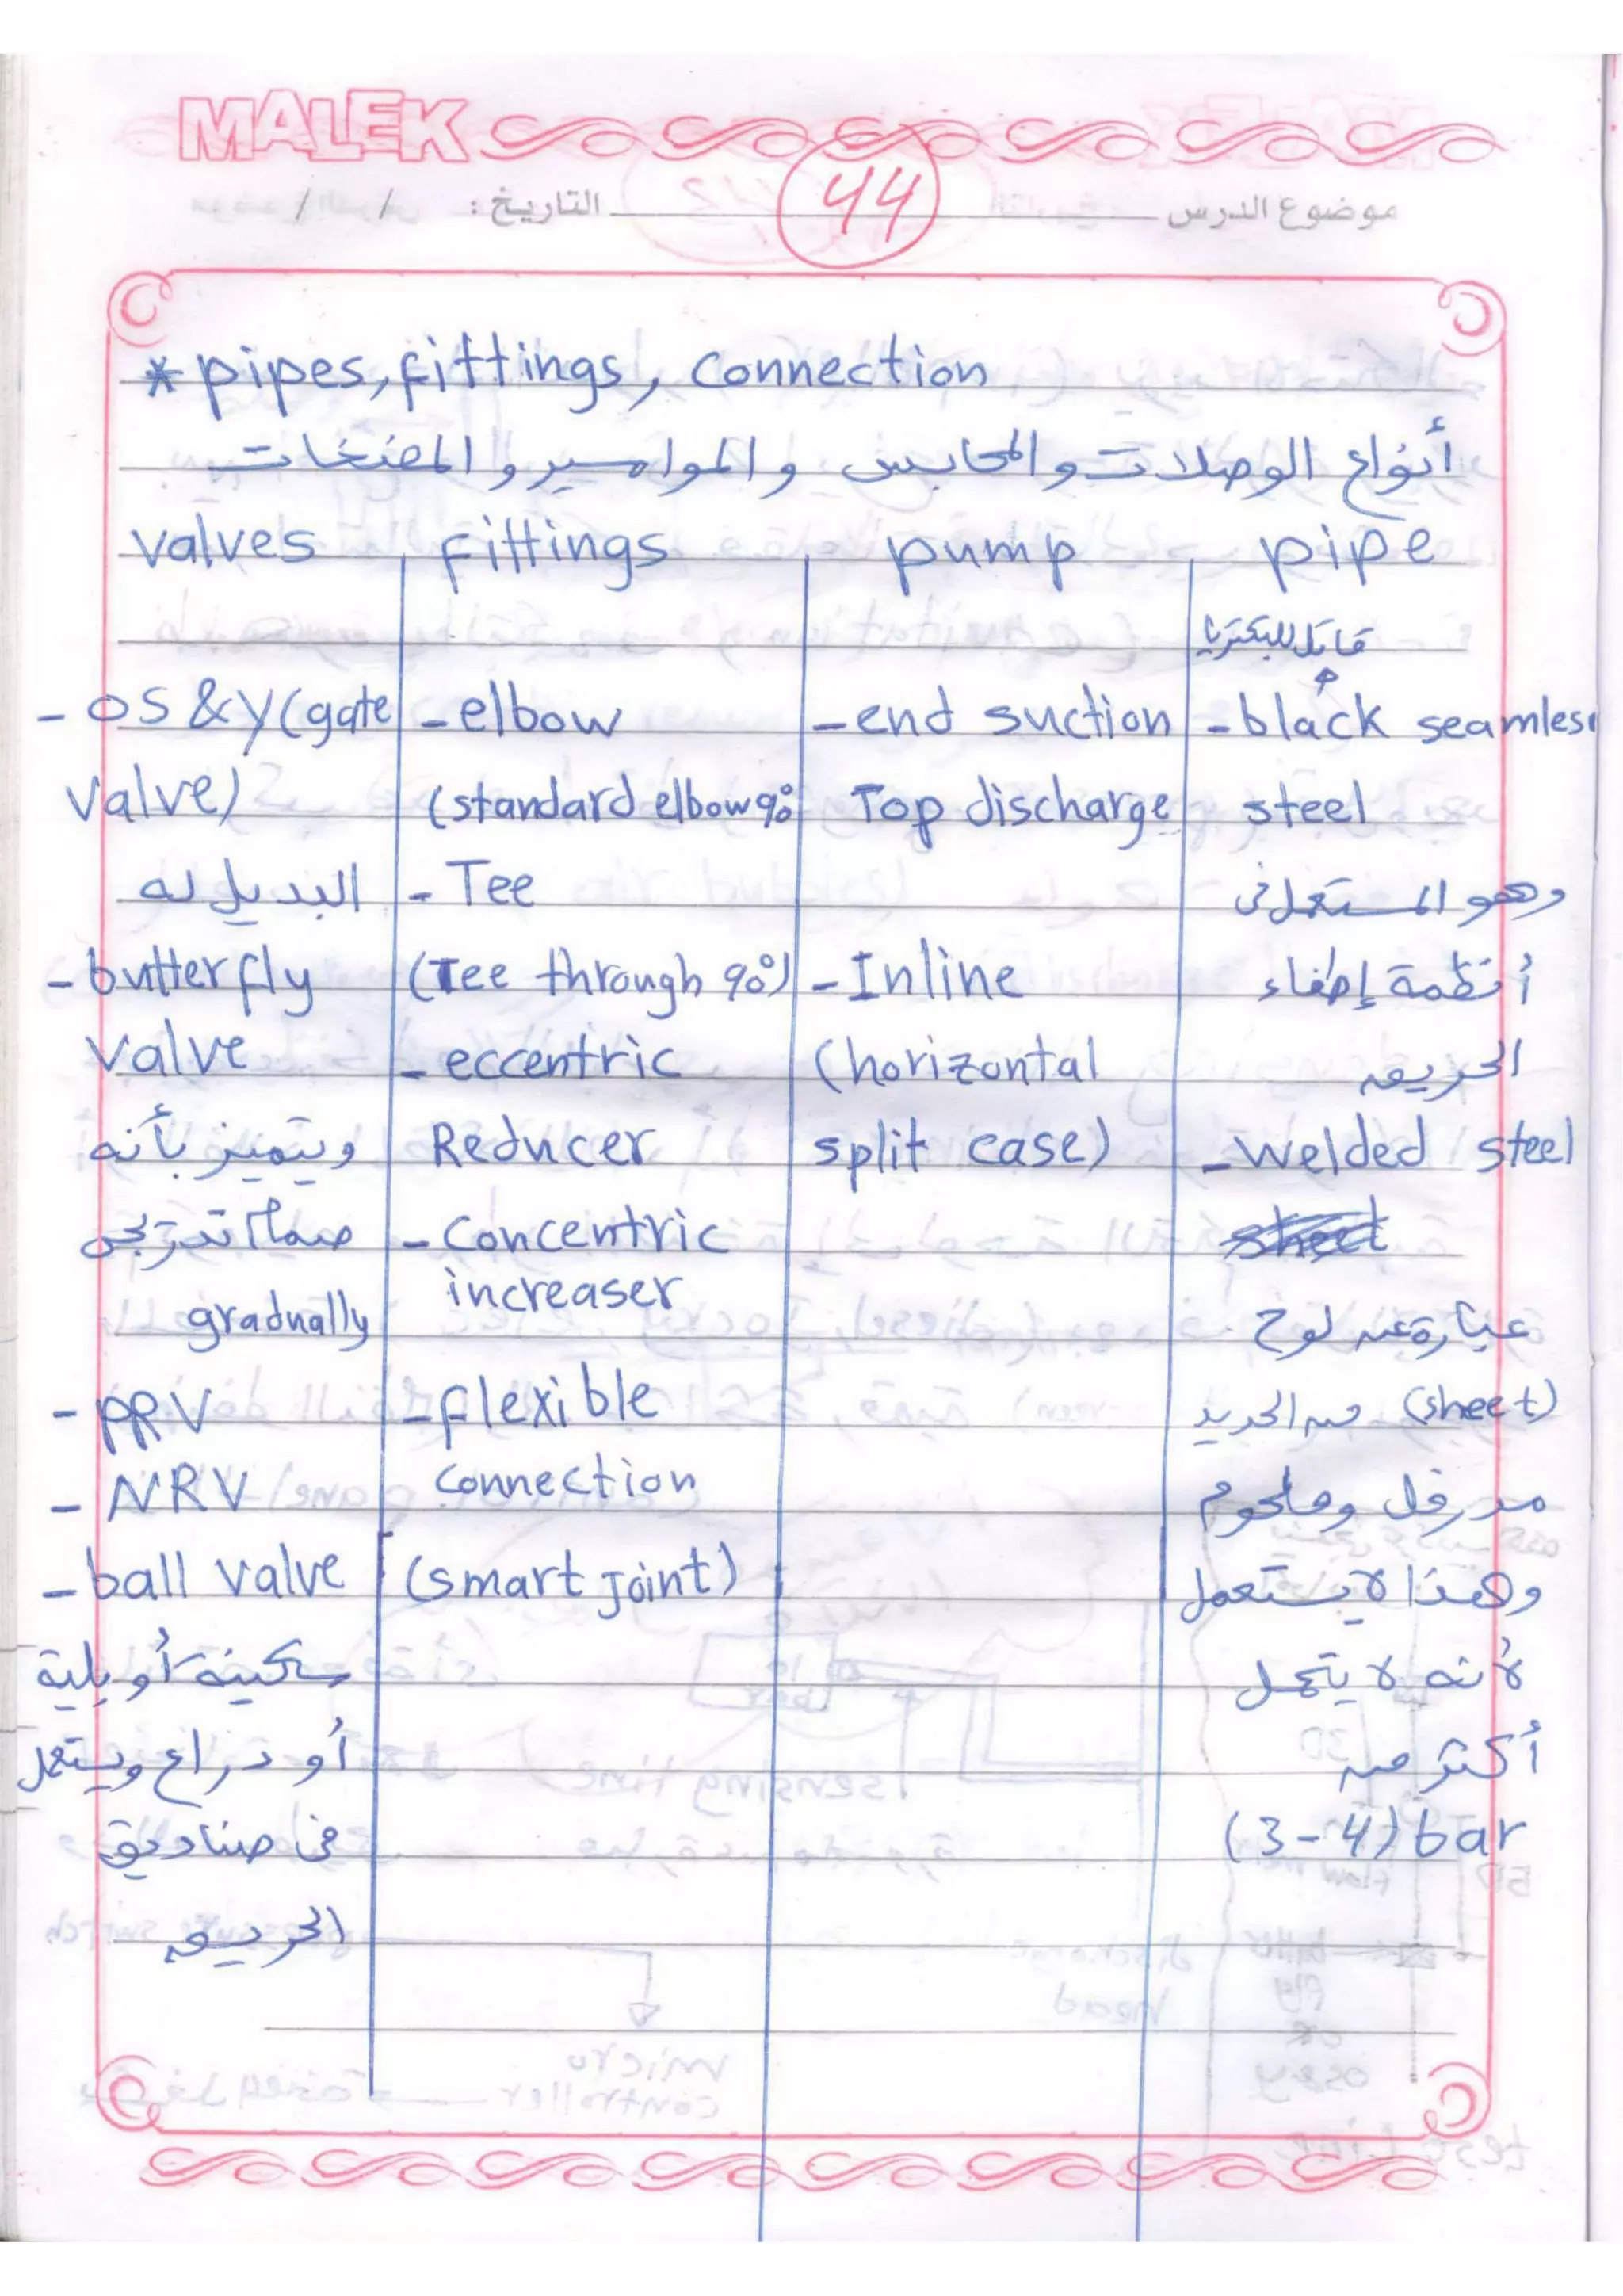 MALEK
موضوع الدرس 44 التاريخ: / /
* pipes, fittings, connection
أنواع الوصلات والمحابس والمواسير والمضخات
valves
- OS & Y (gate
valve)
البديل له
- butterfly
valve
ويتميز بأنه
صمام تدريجى
gradually
- PRV
- NRV
- ball valve
سكينة أو بلية
أو دراع ويستعمل
فى صناديق
الحريق
fittings
- elbow
(standard elbow 90°
- Tee
(Tee through 90°)
- eccentric
Reducer
- Concentric
increaser
- flexible
connection
(smart joint)
pump
- end suction
Top discharge
- Inline
(horizontal
split case)
pipe
قاتل للبكتريا
- black seamless
steel
وهو المستعمل فى
أنظمة إطفاء
الحريق
- welded steel
sheet
عبارة عن لوح
(sheet) من الحديد
مدرفل وملحوم
وهذا لا يستعمل
لأنه لا يتحمل
أكثر من
(3-4) bar